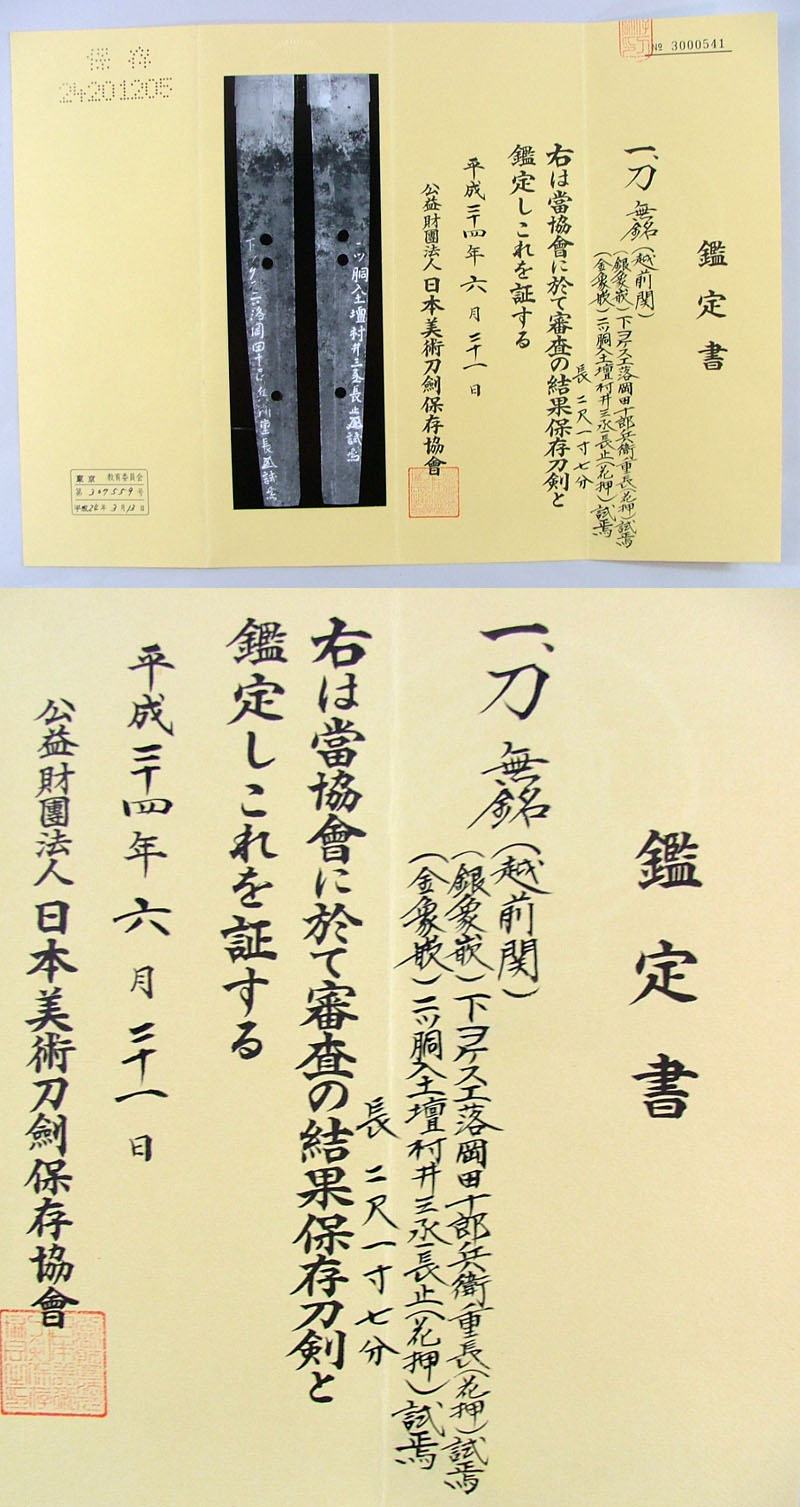 № 3000541
鑑定書
一、刀 無銘(越前関)
(銀象嵌)下ヨケスエ落岡田十郎兵衛重長(花押)試焉
(金象嵌)二ッ胴入土壇村井三丞長止(花押)試焉
長 二尺一寸七分
右は當協會に於て審査の結果保存刀剣と
鑑定しこれを証する
平成二十四年 六月 二十一日
公益財團法人 日本美術刀劍保存協會
二ッ胴入土壇村井三丞長止 試焉
落岡田十 重長 試焉
保存
24201205
東京 教育委員会
第 307559 号
平成24年 3月13日
鑑定書
一、刀 無銘(越前関)
(銀象嵌)下ヨケスエ落岡田十郎兵衛重長(花押)試焉
(金象嵌)二ッ胴入土壇村井三丞長止(花押)試焉
長 二尺一寸七分
右は當協會に於て審査の結果保存刀剣と
鑑定しこれを証する
平成二十四年 六月 二十一日
公益財團法人 日本美術刀劍保存協會